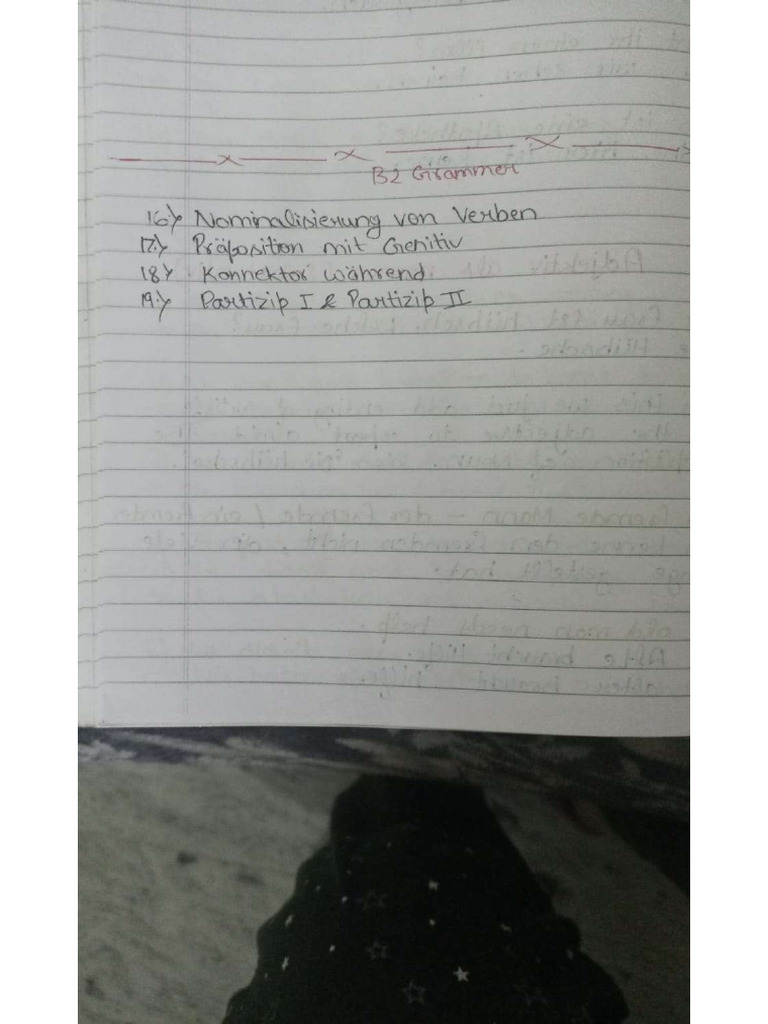 B2 Grammer
16.) Nominalisierung von Verben
17.) Präposition mit Genitiv
18.) Konnektor während
19.) Partizip I & Partizip II